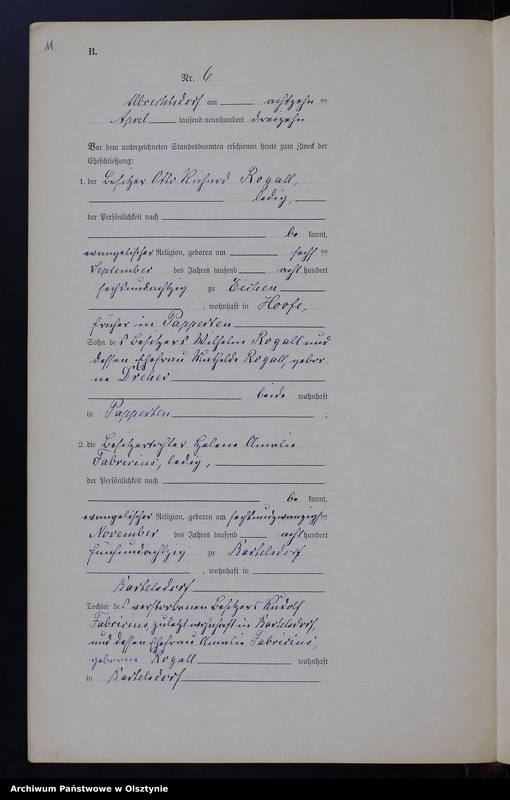 11
B.
Nr. 6
Albrechtsdorf am achtzehn ten
April tausend neunhundert dreizehn
Vor dem unterzeichneten Standesbeamten erschienen heute zum Zweck der
Eheschließung:
1. der Besitzer Otto Richard Rogall,
ledig,
der Persönlichkeit nach
be kannt,
evangelischer Religion, geboren am sechs ten
September des Jahres tausend acht hundert
sechsundachtzig zu Eichen
, wohnhaft in Hoofe,
früher in Papperten
Sohn des Besitzers Wilhelm Rogall und
dessen Ehefrau Mathilde Rogall, gebor
ne Dreher
beide wohnhaft
in Papperten ;
2. die Besitzertochter Helene Amalie
Fabricius, ledig,
der Persönlichkeit nach
be kannt,
evangelischer Religion, geboren am sechsundzwanzigsten
November des Jahres tausend acht hundert
fünfundachtzig zu Bartelsdorf
, wohnhaft in
Bartelsdorf
Tochter des verstorbenen Besitzers Rudolf
Fabricius, zuletzt wohnhaft in Bartelsdorf,
und dessen Ehefrau Amalie Fabricius,
geborne Rogall wohnhaft
in Bartelsdorf
Archiwum Państwowe w Olsztynie